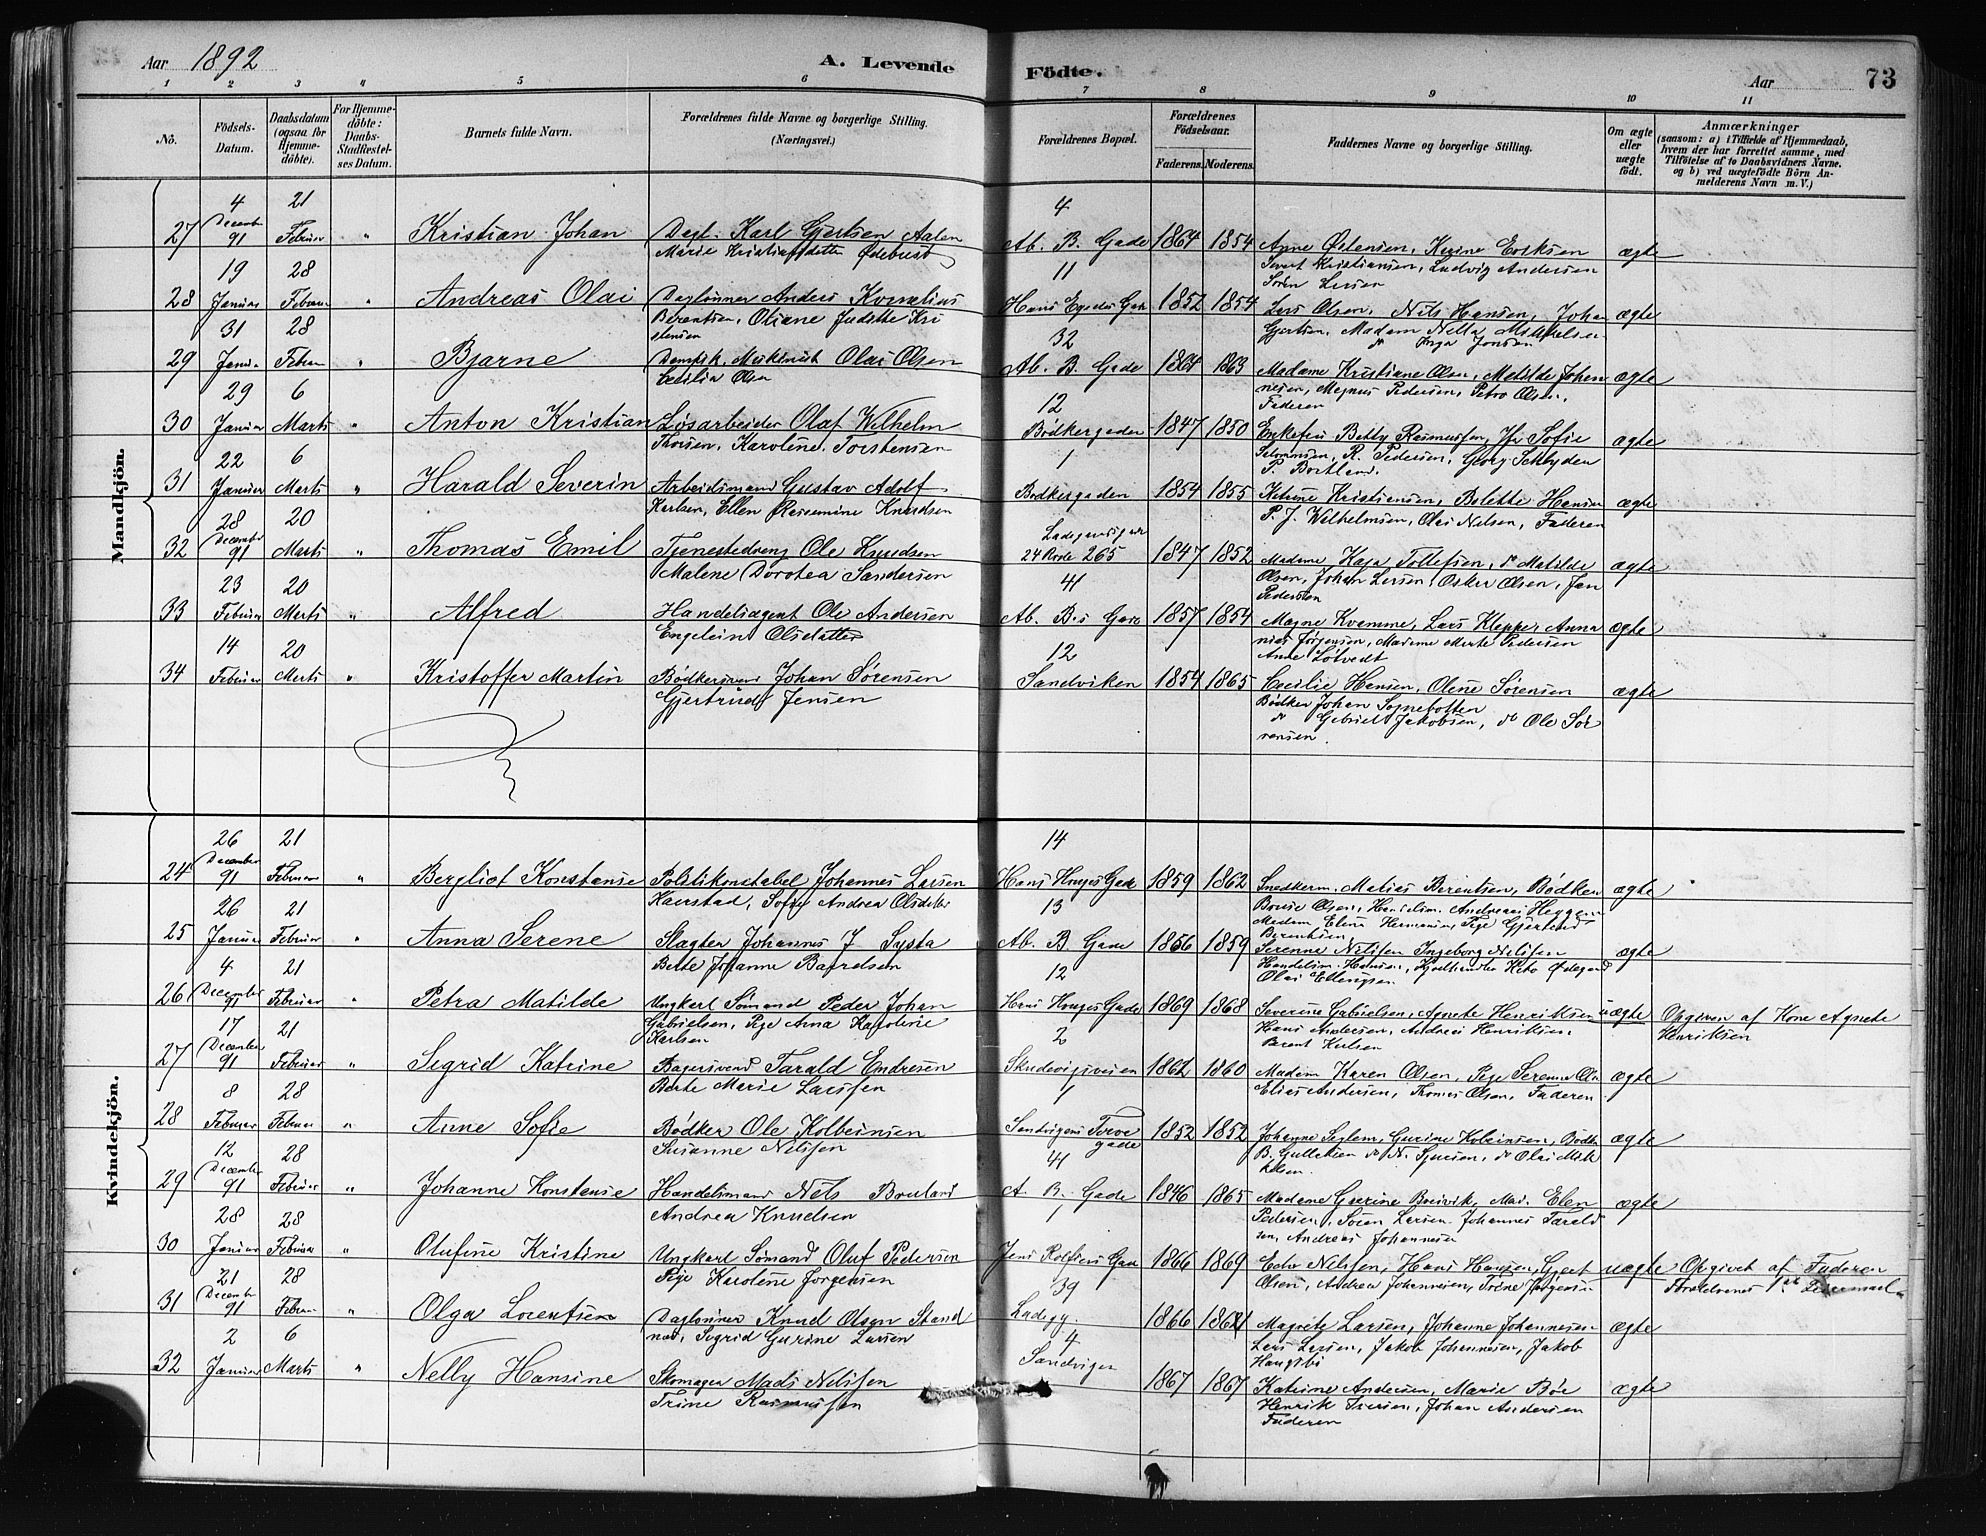 Aar 1892
A. Levende Födte.
Aar 73
1 2 3 4 5 6 7 8 9 10 11
No.
Födsels-Datum.
Daabsdatum (ogsaa for Hjemme-döbte).
For Hjemme-döbte: Daabs-Stadfæstel-ses Datum.
Barnets fulde Navn.
Forældrenes fulde Navne og borgerlige Stilling.
(Næringsvei.)
Forældrenes Bopæl.
Forældrenes Födselsaar.
Faderens. Moderens.
Faddernes Navne og borgerlige Stilling.
Om ægte eller uægte födt.
Anmærkninger
(saasom: a) i Tilfælde af Hjemmedaab,
hvem der har forrettet samme, med
Tilföielse af to Daabsvidners Navne.
og b) ved uægtefödte Börn An-
melderens Navn m. V.)
Mandkjön.
4 21 4
27 December 91 Februar " Kristian Johan Dagl. Karl Gjertsen Aalen Ab. B. Gade 1864 1854 Agne Østensen, Karine Eriksen ægte
Marie Kristiansdatter Sivert Kristiansen, Ludvig Andersen
Søren Larsen
19 28 11
28 Januar Februar " Andreas Olai Daglønner Anders Kornelius Hans Egedes Gade 1852 1854 Lars Olsen, Nils Hansen, Johan ægte
Berentsen, Oliane Judithe Kri Gjertsen, Madam Nella Mikkelsen
stensen do Inga Jonsen
31 28 32
29 Januar Februar " Bjarne Dampsk. Maskinist Olai Olsen Ab. B. Gade 1864 1863 Madame Kristiane Olsen, Matilde Johan ægte
Cecilia Olsen nesen, Magnus Pedersen, Petra Olsen,
Faderen
29 6 12
30 Januar Marts " Anton Kristian Løsarbeider Olaf Wilhelm Bødkergaden 1847 1850 Enkefru Betty Rasmussen, Jfr Sofie ægte
Thorsen, Karoline Torstensen Salomonsen, R. Pedersen, Georg Schyden
P. Bortland.
22 6 1
31 Januar Marts " Harald Severin Arbeidsmand Gustav Adolf Bødkergaden 1854 1855 Katrine Kristiansen, Bolette Hansen ægte
Karlsen, Ellen Rasmine Knudsen P. J. Wilhelmsen, Olai Nilsen, Faderen
28 20
32 December 91 Marts " Thomas Emil Tjenestedreng Ole Knudsen 24 Rode 265 1847 1852 Madame Kaja Tollefsen, do Matilde ægte
Malene Dorotea Sandersen Olsen, Johan Larsen, Oskar Olsen, Jan
Pedersen
23 20 41
33 Februar Marts " Alfred Handelsagent Ole Andersen Ab. B.s Gade 1857 1854 Magne Kvamme, Lars Klepper Anna ægte
Engeline Olsdatter nias Jørgensen, Madame Marte Pedersen
Anne Løtvedt
14 20 12
34 Februar Marts " Kristoffer Martin Bødkersvend Johan Sørensen Sandviken 1854 1865 Cecilie Hansen, Oline Sørensen ægte
Gjertrud Jensen Bødker Johan Sognebotten
do Gabriel Jakobsen, do Ole Sør
rensen
Kvindekjön.
26 21 14
24 December 91 Februar " Bergliot Konstanse Politikonstabel Johannes Larsen Hans Hauges Gade 1859 1862 Snedkerm. Matias Berentsen, Bødker ægte
Kaarstad, Sofie Andrea Olsdatter Olsen, Handelsm. Andreas
Madam Elina Hermansen, Pige Gjertrud
Berentsen
26 21 13
25 Januar Februar " Anna Serene Slagter Johannes J Systa Ab. B. Gade 1856 1859 Serenne Nilsen Ingeborg Nilsen ægte
Berte Johanne Baardsen Handelsm. Hansen,
Olai Ellingsen
4 21 12
26 December 91 Februar " Petra Matilde Ungkarl Sømand Peder Johan Hans Hauges Gade 1869 1868 Severine Gabrielsen, Agnete Henriksen uægte Opgiven af Kone Agnete
Gabrielsen, Pige Anna Karoline Hans Andersen, Andrea Henriksen Henriksen
Karlsen Berent Karlsen
17 21 2
27 December 91 Februar " Sigrid Katrine Bagersvend Tarald Endresen Skudevigsveien 1862 1860 Madam Karen Olsen, Pige Serenne Olsen ægte
Berte Marie Larssen Elias Andersen, Thomas Olsen, Faderen
8 28 1
28 Februar Februar " Anne Sofie Bødker Ole Kolbeinsen Sandvigens Torvegade 1852 1852 Johanne Seglem, Gurine Kolbeinsen, Bødk ægte
Susanne Nilsen B. Gulleksen do N. Sjursen, do Olai Mik
kelsen.
12 28 41
29 December 91 Februar " Johanne Konstanse Handelsmand Nels A. B. Gade 1846 1865 Madame Gurine Breivik, Mad. Elen ægte
Andrea Knudsen Pedersen, Søren Larsen Johannes Tarald
sen, Andreas Johannesen
28 28 1
30 Januar Februar " Olufine Kristine Ungkarl Sømand Oluf Pedersen Jens Rolfsens Gade 1866 1869 Edv Nilsen, Hans Hansen, Gjert uægte Opgivet af Faderen
Pige Karoline Jørgensen Olsen, Andrea Johannesen, Trine Jørgensen Forældrenes
21 28 39
31 December 91 Februar " Olga Lorentsine Daglønner Knud Olsen Strand Ladegg. 1866 1864 Magrete Larsen, Johanne Johannesen ægte
Sigrid Gurine Larsen Lars Larsen, Jakob Johannesen, Jakob
Haugsbø
2 6 4
32 Januar Marts " Nelly Hansine Skomager Mads Nilsen Sandvigen 1867 1867 Katrine Andersen, Marie Bøe ægte
Trine Rasmussen Henrik Iversen, Johan Andersen
Faderen